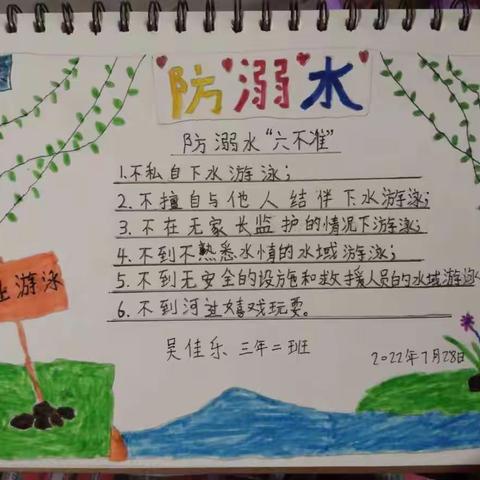 防溺水
防溺水“六不准”
1.不私自下水游泳；
2.不擅自与他人结伴下水游泳；
3.不在无家长监护的情况下游泳；
4.不到不熟悉水情的水域游泳；
5.不到无安全的设施和救援人员的水域游泳
6.不到河边嬉戏玩耍。
止游泳
吴佳乐 三年二班
2022年7月28日